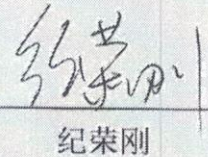 纪荣刚
纪荣刚